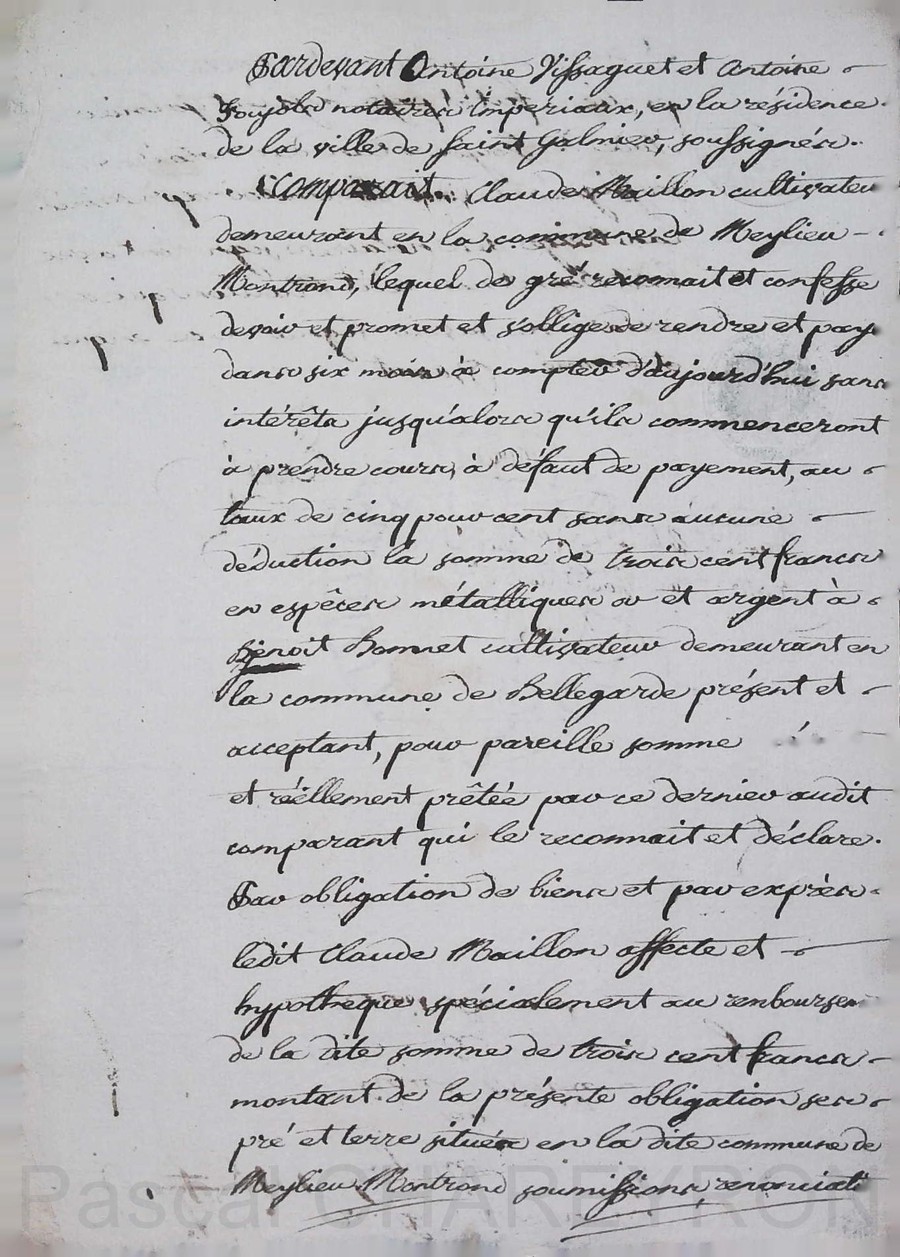 Pardevant Antoine Vissaguet et Antoine
notaires impériaux, en la résidence
de la ville de Saint Galmier, soussignés.
Comparait Claude Maillon cultivateu
demeurant en la commune de Meylieu
Montrond, lequel de gré reconnait et confesse
devoir et promet et s'oblige de rendre et paye
dans six mois à compter d'aujourd'hui sans
intérêts jusqu'alors qu'ils commenceront
à prendre cours, à défaut de payement, au
taux de cinq pour cent sans aucune
déduction la somme de trois cent francs
en espèces métalliques or et argent à
Benoit Bonnet cultivateur demeurant en
la commune de Bellegarde présent et
acceptant, pour pareille somme
et réellement prêtée par ce dernier audit
comparant qui le reconnait et déclare.
Par obligation de biens et par exprès
ledit Claude Maillon affecte et
hypotheque spécialement au rembourse
de la dite somme de trois cent francs
montant de la présente obligation ses
pré et terre situés en la dite commune de
Meylieu Montrond soumissions, renonciati
Pascal CHAREYRON